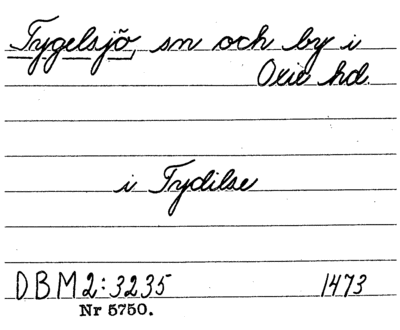 Tygelsjö, sn och by i
Oxie hd.
i Tydilse
DBM 2:3235 1473
Nr 5750.